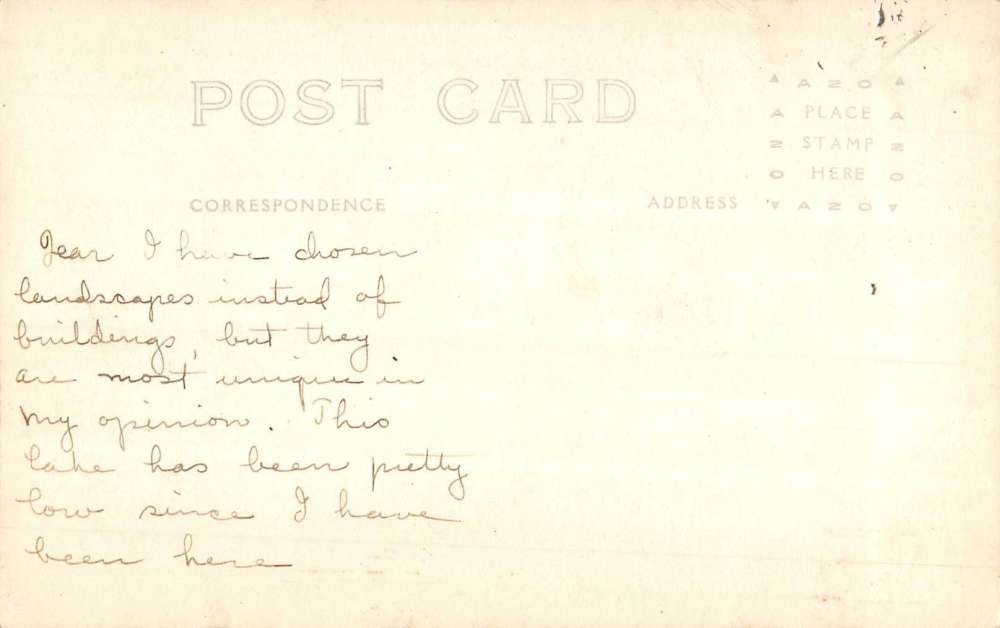 POST CARD
▲ A Z O ▲
A PLACE A
Z STAMP Z
O HERE O
▼ A Z O ▼
CORRESPONDENCE
ADDRESS
Dear I have chosen
landscapes instead of
buildings, but they
are most unique in
my opinion. This
lake has been pretty
low since I have
been here